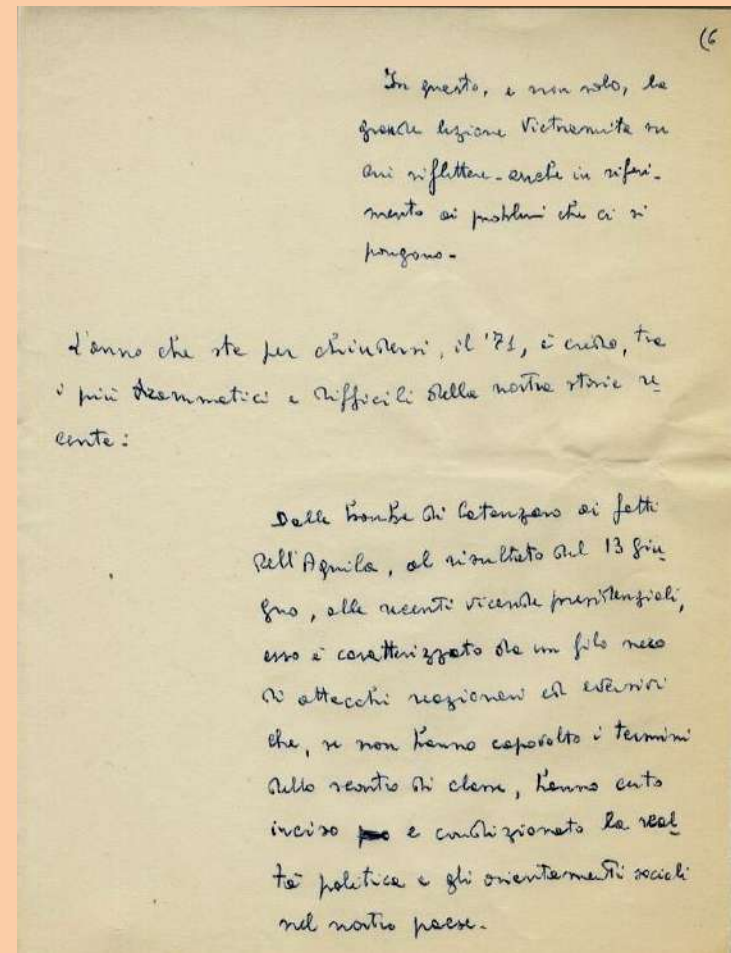 (6
In questo, e non solo, la
grande lezione Vietnamita su
cui riflettere - anche in riferi-
mento ai problemi che ci si
pongono -
L'anno che sta per chiudersi, il '71, è credo, tra
i più drammatici e difficili della nostra storia re-
cente :
Dalle bombe di Catanzaro ai fatti
dell'Aquila, al risultato del 13 giu-
gno, alle recenti vicende presidenziali,
esso è caratterizzato da un filo nero
di attacchi reazionari ed eversivi
che, se non hanno capovolto i termini
dello scontro di classe, hanno certo
inciso e condizionato la real-
tà politica e gli orientamenti sociali
nel nostro paese -